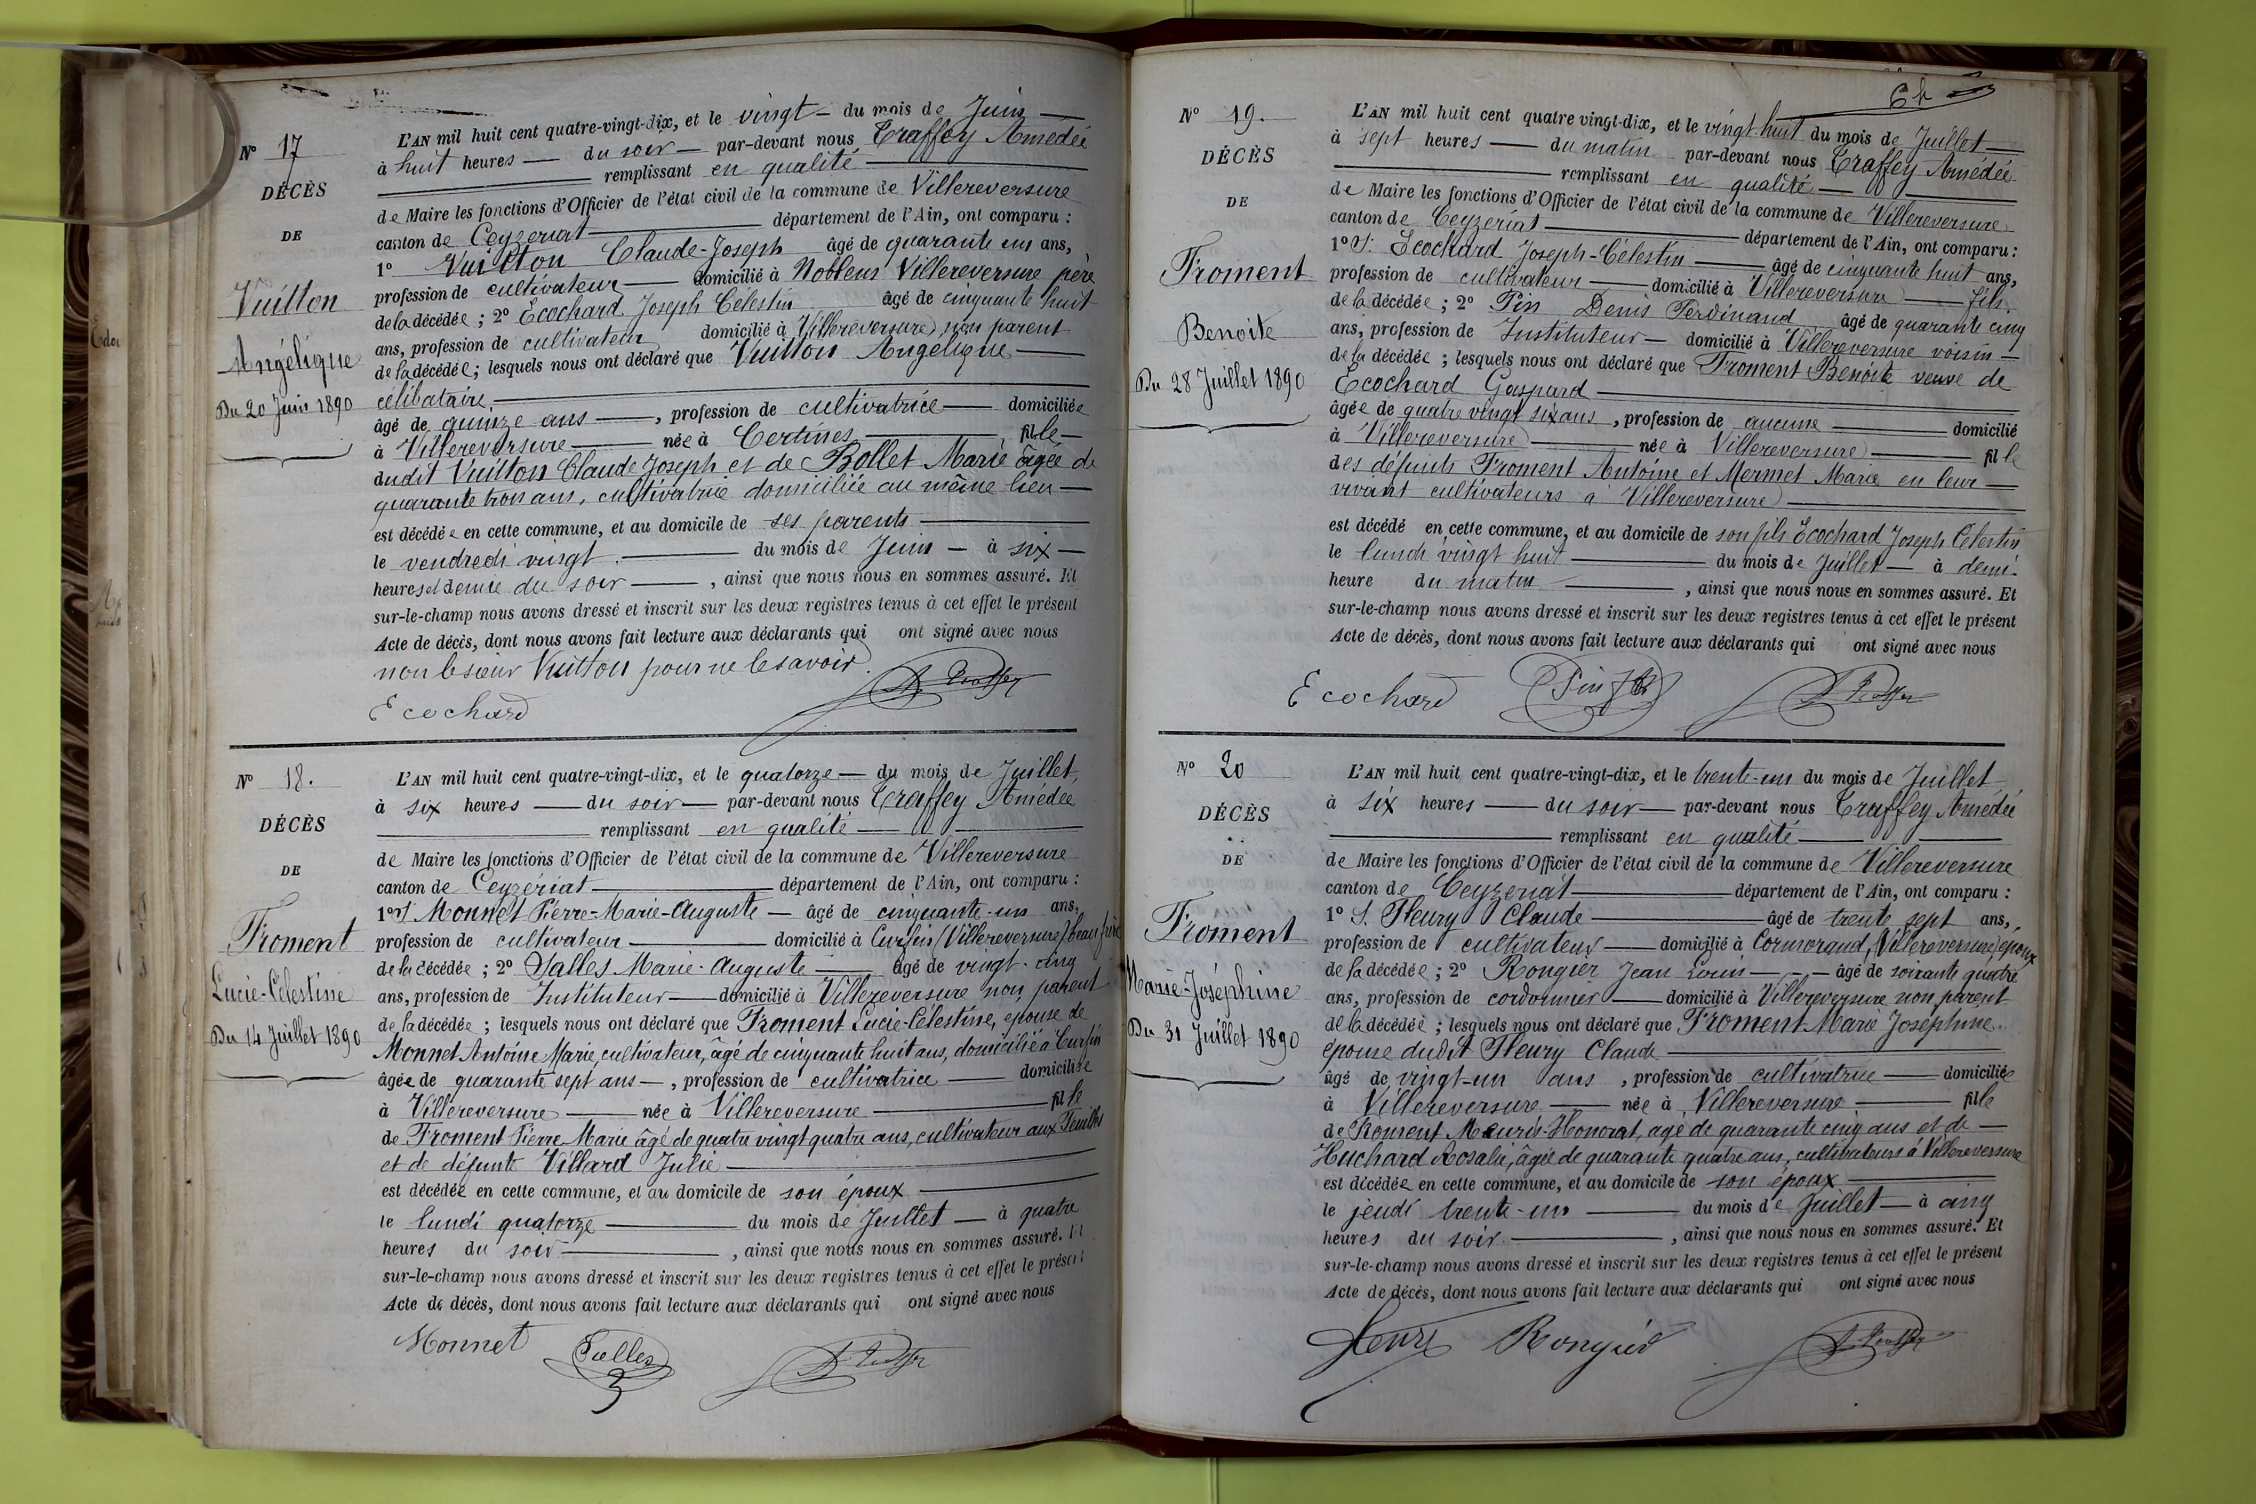 N° 17
DÉCÈS
DE
Vuitton
Angélique
Du 20 Juin 1890
L'AN mil huit cent quatre-vingt-dix, et le vingt du mois de Juin
à huit heures du soir par-devant nous Traffey Amédée
remplissant en qualité
de Maire les fonctions d'Officier de l'état civil de la commune de Villereversure
canton de Ceyzeriat département de l'Ain, ont comparu :
1° Vuitton Claude-Joseph âgé de quarante un ans,
profession de cultivateur domicilié à Noblens Villereversure père
de la décédée ; 2° Ecochard Joseph Célestin âgé de cinquante huit
ans, profession de cultivateur domicilié à Villereversure non parent
de la décédée ; lesquels nous ont déclaré que Vuitton Angelique
célibataire
âgé de quinze ans, profession de cultivatrice domiciliée
à Villereversure née à Certines fille
dudit Vuitton Claude Joseph et de Bollet Marie âgée de
quarante trois ans, cultivatrice domiciliée au même lieu
est décédée en cette commune, et au domicile de ses parents
le vendredi vingt du mois de Juin à six
heures et demie du soir, ainsi que nous nous en sommes assuré. Et
sur-le-champ nous avons dressé et inscrit sur les deux registres tenus à cet effet le présent
Acte de décès, dont nous avons fait lecture aux déclarants qui ont signé avec nous
non le sieur Vuitton pour ne le savoir.
Ecochard
A. Traffey
N° 18.
DÉCÈS
DE
Froment
Lucie-Célestine
Du 14 Juillet 1890
L'AN mil huit cent quatre-vingt-dix, et le quatorze du mois de Juillet,
à six heures du soir par-devant nous Traffey Amédée
remplissant en qualité
de Maire les fonctions d'Officier de l'état civil de la commune de Villereversure
canton de Ceyzériat département de l'Ain, ont comparu :
1° S. Monnet Pierre-Marie-Auguste âgé de cinquante-un ans,
profession de cultivateur domicilié à Curfin (Villereversure) beau frère
de la décédée ; 2° Salles Marie-Auguste âgé de vingt-cinq
ans, profession de Instituteur domicilié à Villereversure non parent
de la décédée ; lesquels nous ont déclaré que Froment Lucie-Célestine, épouse de
Monnet Antoine Marie, cultivateur, âgé de cinquante huit ans, domicilié à Curfin
âgée de quarante sept ans, profession de cultivatrice domiciliée
à Villereversure née à Villereversure fille
de Froment Pierre Marie âgé de quatre vingt quatre ans, cultivateur aux Feuilles
et de défunte Villard Julie
est décédée en cette commune, et au domicile de son époux
le lundi quatorze du mois de Juillet à quatre
heures du soir, ainsi que nous nous en sommes assuré. Et
sur-le-champ nous avons dressé et inscrit sur les deux registres tenus à cet effet le présent
Acte de décès, dont nous avons fait lecture aux déclarants qui ont signé avec nous
Monnet
Salles
A. Traffey
N° 19.
DÉCÈS
DE
Froment
Benoîte
Du 28 Juillet 1890
L'AN mil huit cent quatre vingt-dix, et le vingt-huit du mois de Juillet
à sept heures du matin par-devant nous Traffey Amédée
remplissant en qualité
de Maire les fonctions d'Officier de l'état civil de la commune de Villereversure
canton de Ceyzeriat département de l'Ain, ont comparu :
1° S. Ecochard Joseph-Célestin âgé de cinquante huit ans,
profession de cultivateur domicilié à Villereversure fils
de la décédée ; 2° Pin Denis Ferdinand âgé de quarante cinq
ans, profession de Instituteur domicilié à Villereversure voisin
de la décédée ; lesquels nous ont déclaré que Froment Benoîte veuve de
Ecochard Gaspard
âgée de quatre vingt six ans, profession de aucune domicilié
à Villereversure née à Villereversure fille
des défunts Froment Antoine et Mermet Marie en leur
vivant cultivateurs à Villereversure
est décédé en cette commune, et au domicile de son fils Ecochard Joseph Celestin
le lundi vingt huit du mois de Juillet à demi-
heure du matin, ainsi que nous nous en sommes assuré. Et
sur-le-champ nous avons dressé et inscrit sur les deux registres tenus à cet effet le présent
Acte de décès, dont nous avons fait lecture aux déclarants qui ont signé avec nous
Ecochard
Pin
A. Traffey
N° 20
DÉCÈS
DE
Froment
Marie-Joséphine
Du 31 Juillet 1890
L'AN mil huit cent quatre-vingt-dix, et le trente-un du mois de Juillet
à six heures du soir par-devant nous Traffey Amédée
remplissant en qualité
de Maire les fonctions d'Officier de l'état civil de la commune de Villereversure
canton de Ceyzeriat département de l'Ain, ont comparu :
1° S. Fleury Claude âgé de trente sept ans,
profession de cultivateur domicilié à Cormorand, (Villereversure) époux
de la décédée ; 2° Rongier Jean Louis âgé de soixante quatre
ans, profession de cordonnier domicilié à Villereversure non parent
de la décédée ; lesquels nous ont déclaré que Froment Marie Joséphine.
épouse dudit Fleury Claude
âgé de vingt-un ans, profession de cultivatrice domiciliée
à Villereversure née à Villereversure fille
de Froment Mauris-Honorat, agé de quarante cinq ans et de
Huchard Rosalie, âgée de quarante quatre ans, cultivateurs à Villereversure
est décédée en cette commune, et au domicile de son époux
le jeudi trente-un du mois de Juillet à cinq
heures du soir, ainsi que nous nous en sommes assuré. Et
sur-le-champ nous avons dressé et inscrit sur les deux registres tenus à cet effet le présent
Acte de décès, dont nous avons fait lecture aux déclarants qui ont signé avec nous
Fleury
Rongier
A. Traffey